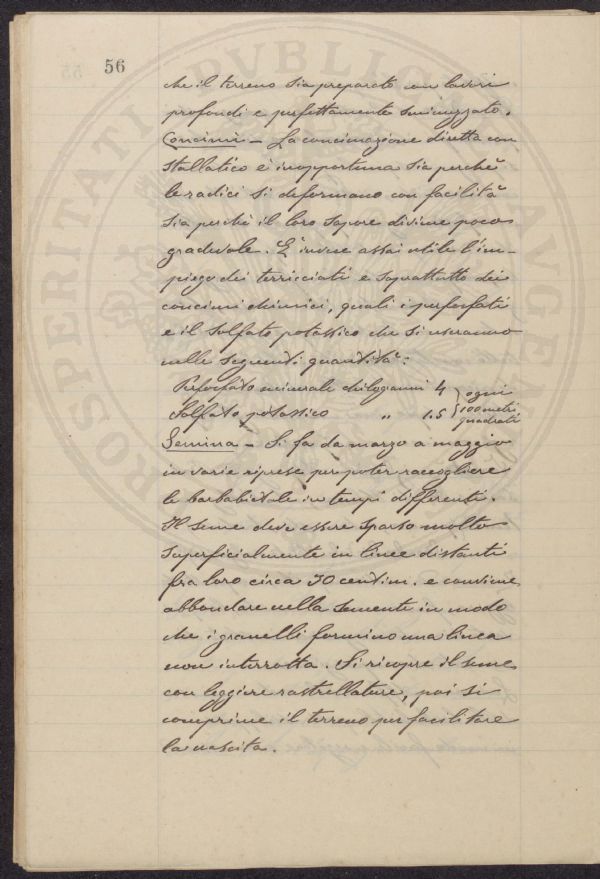 56
che il terreno sia preparato con lavori
profondi e perfettamente sminuzzato.
Concimi - La concimazione diretta con
stallatico è inopportuna sia perchè
le radici si deformano con facilità
sia perchè il loro sapore diviene poco
gradevole. È invece assai utile l'im-
piego dei terricciati e soprattutto dei
concimi chimici, quali i perfosfati
e il solfato potassico che si useranno
nelle seguenti quantità:
Perfosfato minerale chilogrammi 4 } ogni
Solfato potassico " 1.5 } 100 metri
quadrati
Semina - Si fa da marzo a maggio
in varie riprese per poter raccogliere
le barbabietole in tempi differenti.
Il seme deve essere sparso molto
superficialmente in linee distanti
fra loro circa 30 centim. e conviene
abbondare nella semente in modo
che i granelli formino una linea
non interrotta. Si ricopre il seme
con leggiere rastrellature, poi si
comprime il terreno per facilitare
la nascita.
PROSPERITATI PVBLICAE AVGE